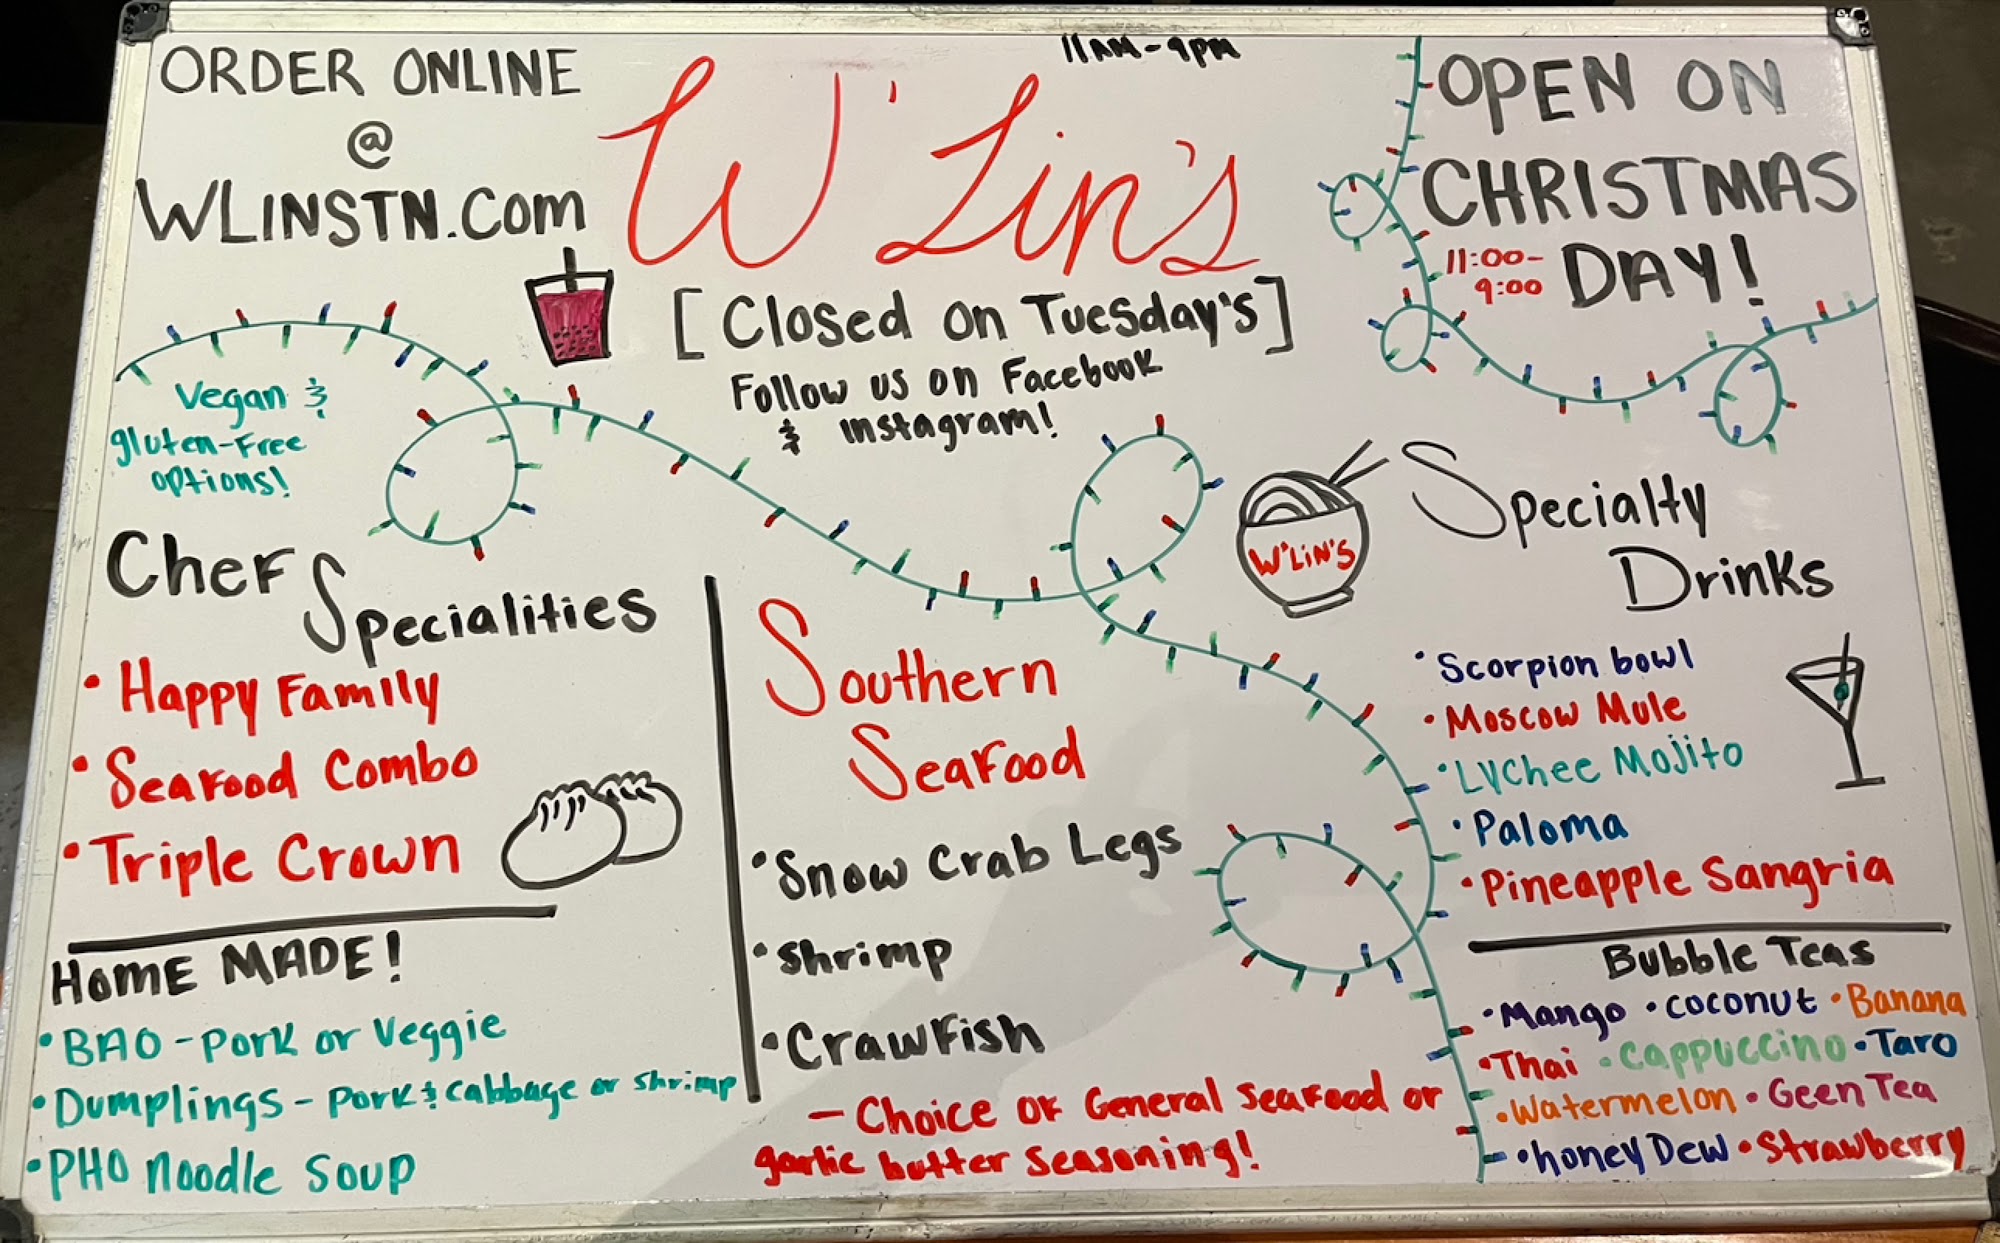 11AM-9PM
ORDER ONLINE
@
WLINSTN.Com
W'Lin's
[Closed on Tuesday's]
Follow us on Facebook
& Instagram!
OPEN ON
CHRISTMAS
DAY!
11:00-
9:00
Vegan &
gluten-Free
options!
Chef
Specialities
• Happy Family
• Seafood Combo
• Triple Crown
Home MADE!
• BAO - Pork or Veggie
• Dumplings - Pork & cabbage or shrimp
• PHO noodle soup
Southern
Seafood
• Snow Crab Legs
• Shrimp
• Crawfish
- Choice of General Seafood or
garlic butter seasoning!
W'LiN'S
Specialty
Drinks
• Scorpion bowl
• Moscow Mule
• Lychee Mojito
• Paloma
• Pineapple Sangria
Bubble Teas
• Mango • coconut • Banana
• Thai • Cappuccino • Taro
• Watermelon • Geen Tea
• honey Dew • Strawberry